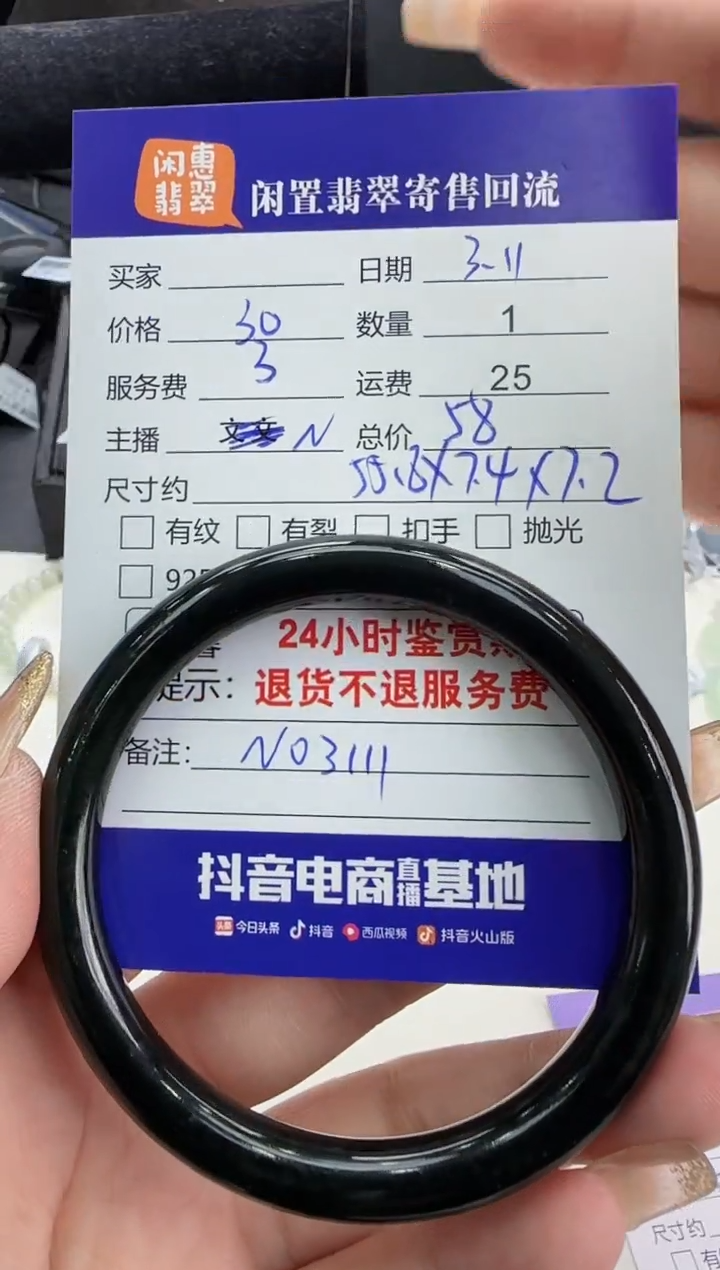 闲惠
翡翠
闲置翡翠寄售回流
买家 日期 3-11
价格 30 数量 1
服务费 3 运费 25
主播 N 总价 58
尺寸约 X7.4X7.2
有纹 有裂 扣手 抛光
925
24小时鉴赏
提示：退货不退服务费
备注：NO3111
抖音电商直播基地
头条 今日头条 抖音 西瓜视频 抖音火山版
尺寸约